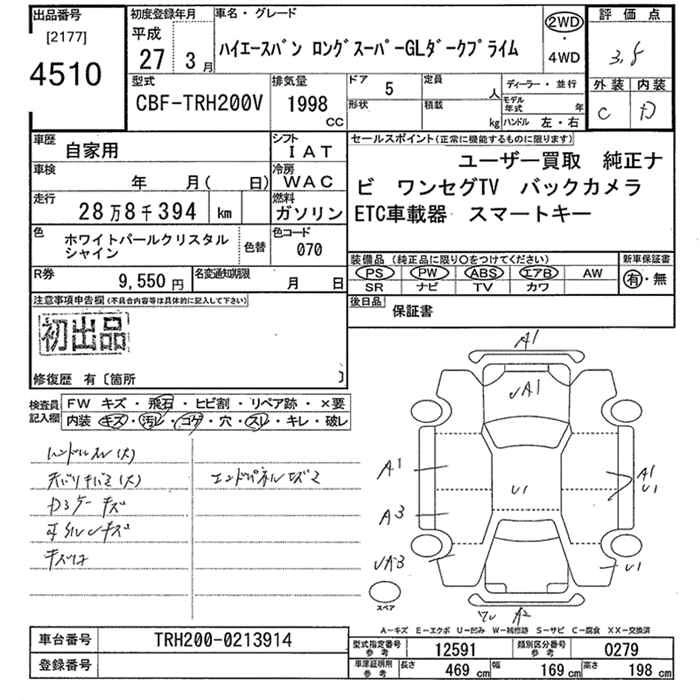 出品番号
[2177]
4510
初度登録年月
平成
27 3月
車名・グレード
ハイエースバン ロングスーパーGLダークプライム
2WD
・
4WD
評価点
3.5
外装 内装
C D
型式
CBF-TRH200V
排気量
1998
CC
ドア 5
形状
定員 人
積載 kg
ディーラー・並行
モデル年式 年
ハンドル 左・右
車歴
自家用
シフト
IAT
車検
年 月( 日)
冷房
WAC
走行
28万8千394 km
燃料
ガソリン
色
ホワイトパールクリスタル
シャイン
色替
色コード
070
R券
9,550円
名変通知期限
月 日
セールスポイント(正常に機能するものに限ります)
ユーザー買取 純正ナ
ビ ワンセグTV バックカメラ
ETC車載器 スマートキー
装備品 (純正品に限り○をつけてください)
PS PW ABS エアB AW
SR ナビ TV カワ
新車保証書
有・無
後日品
保証書
注意事項申告欄(不具合内容等は具体的に記入して下さい)
初出品
修復歴 有〔箇所 〕
検査員
記入欄
FW キズ・飛石・ヒビ割・リペア跡・×要
内装 キズ・汚レ・コゲ・穴・スレ・キレ・破レ
ハンドルスレ(大)
キズ
A1
A1
A1
A1
U1
U1
A3
U1
A2
スペア
A－キズ E－エクボ U－凹み W－補修跡 S－サビ C－腐食 XX－交換済
車台番号
TRH200-0213914
登録番号
型式指定番号
参考
12591
類別区分番号
参考
0279
車庫証明用
参考
長さ 469 cm
幅 169 cm
高さ 198 cm